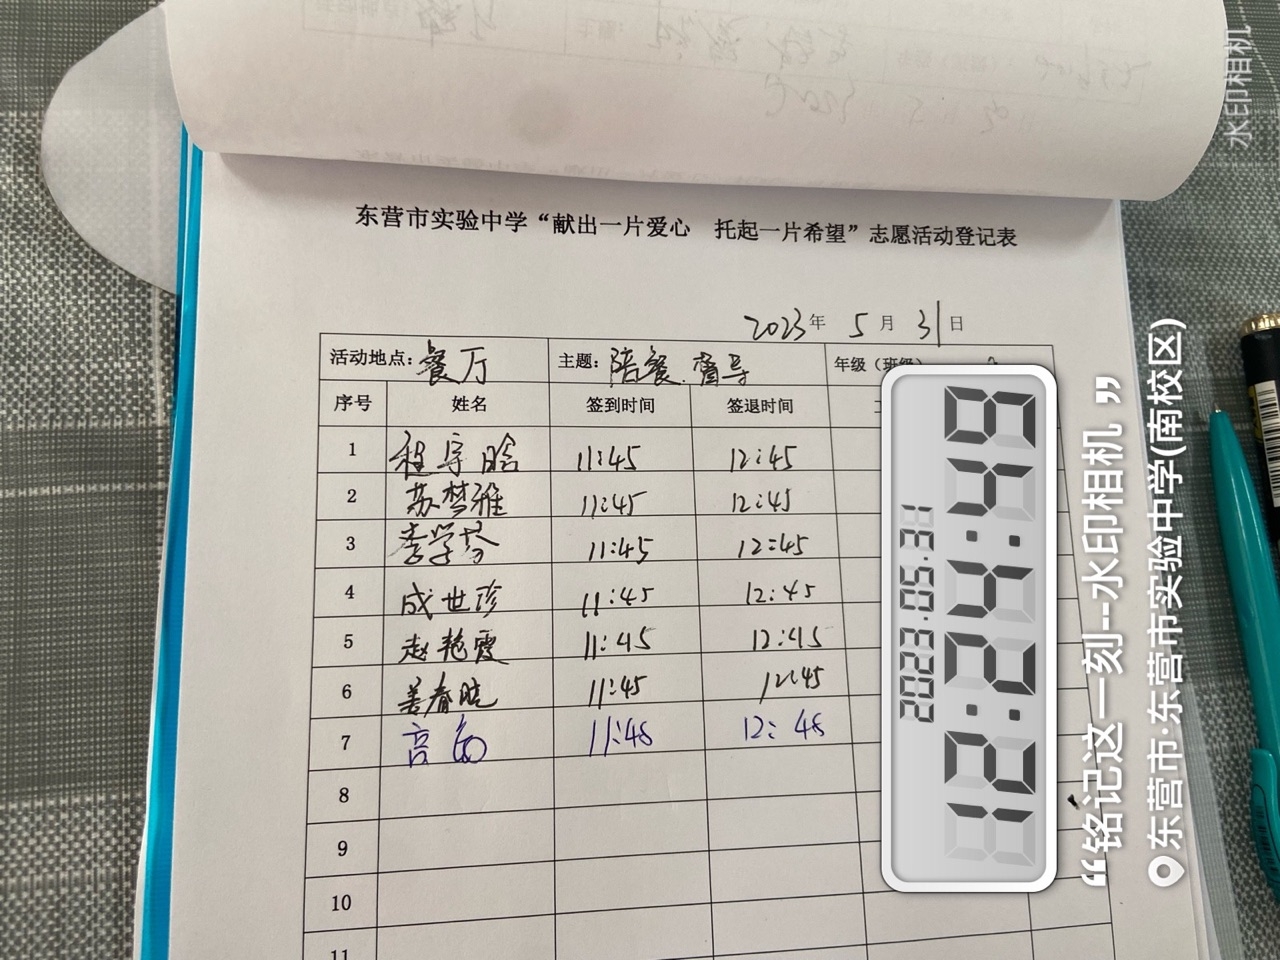 东营市实验中学“献出一片爱心 托起一片希望”志愿活动登记表
2023年 5月 31日
活动地点：餐厅 主题：陪餐、督导 年级（班级）
序号 姓名 签到时间 签退时间
1 程宇晗 11:45 12:45
2 苏梦雅 11:45 12:45
3 李学芬 11:45 12:45
4 成世珍 11:45 12:45
5 赵艳霞 11:45 12:45
6 姜春晓 11:45 12:45
7 高 11:48 12:48
8
9
10
11
2023.05.31
“铭记这一刻--水印相机”
东营市·东营市实验中学(南校区)
水印相机